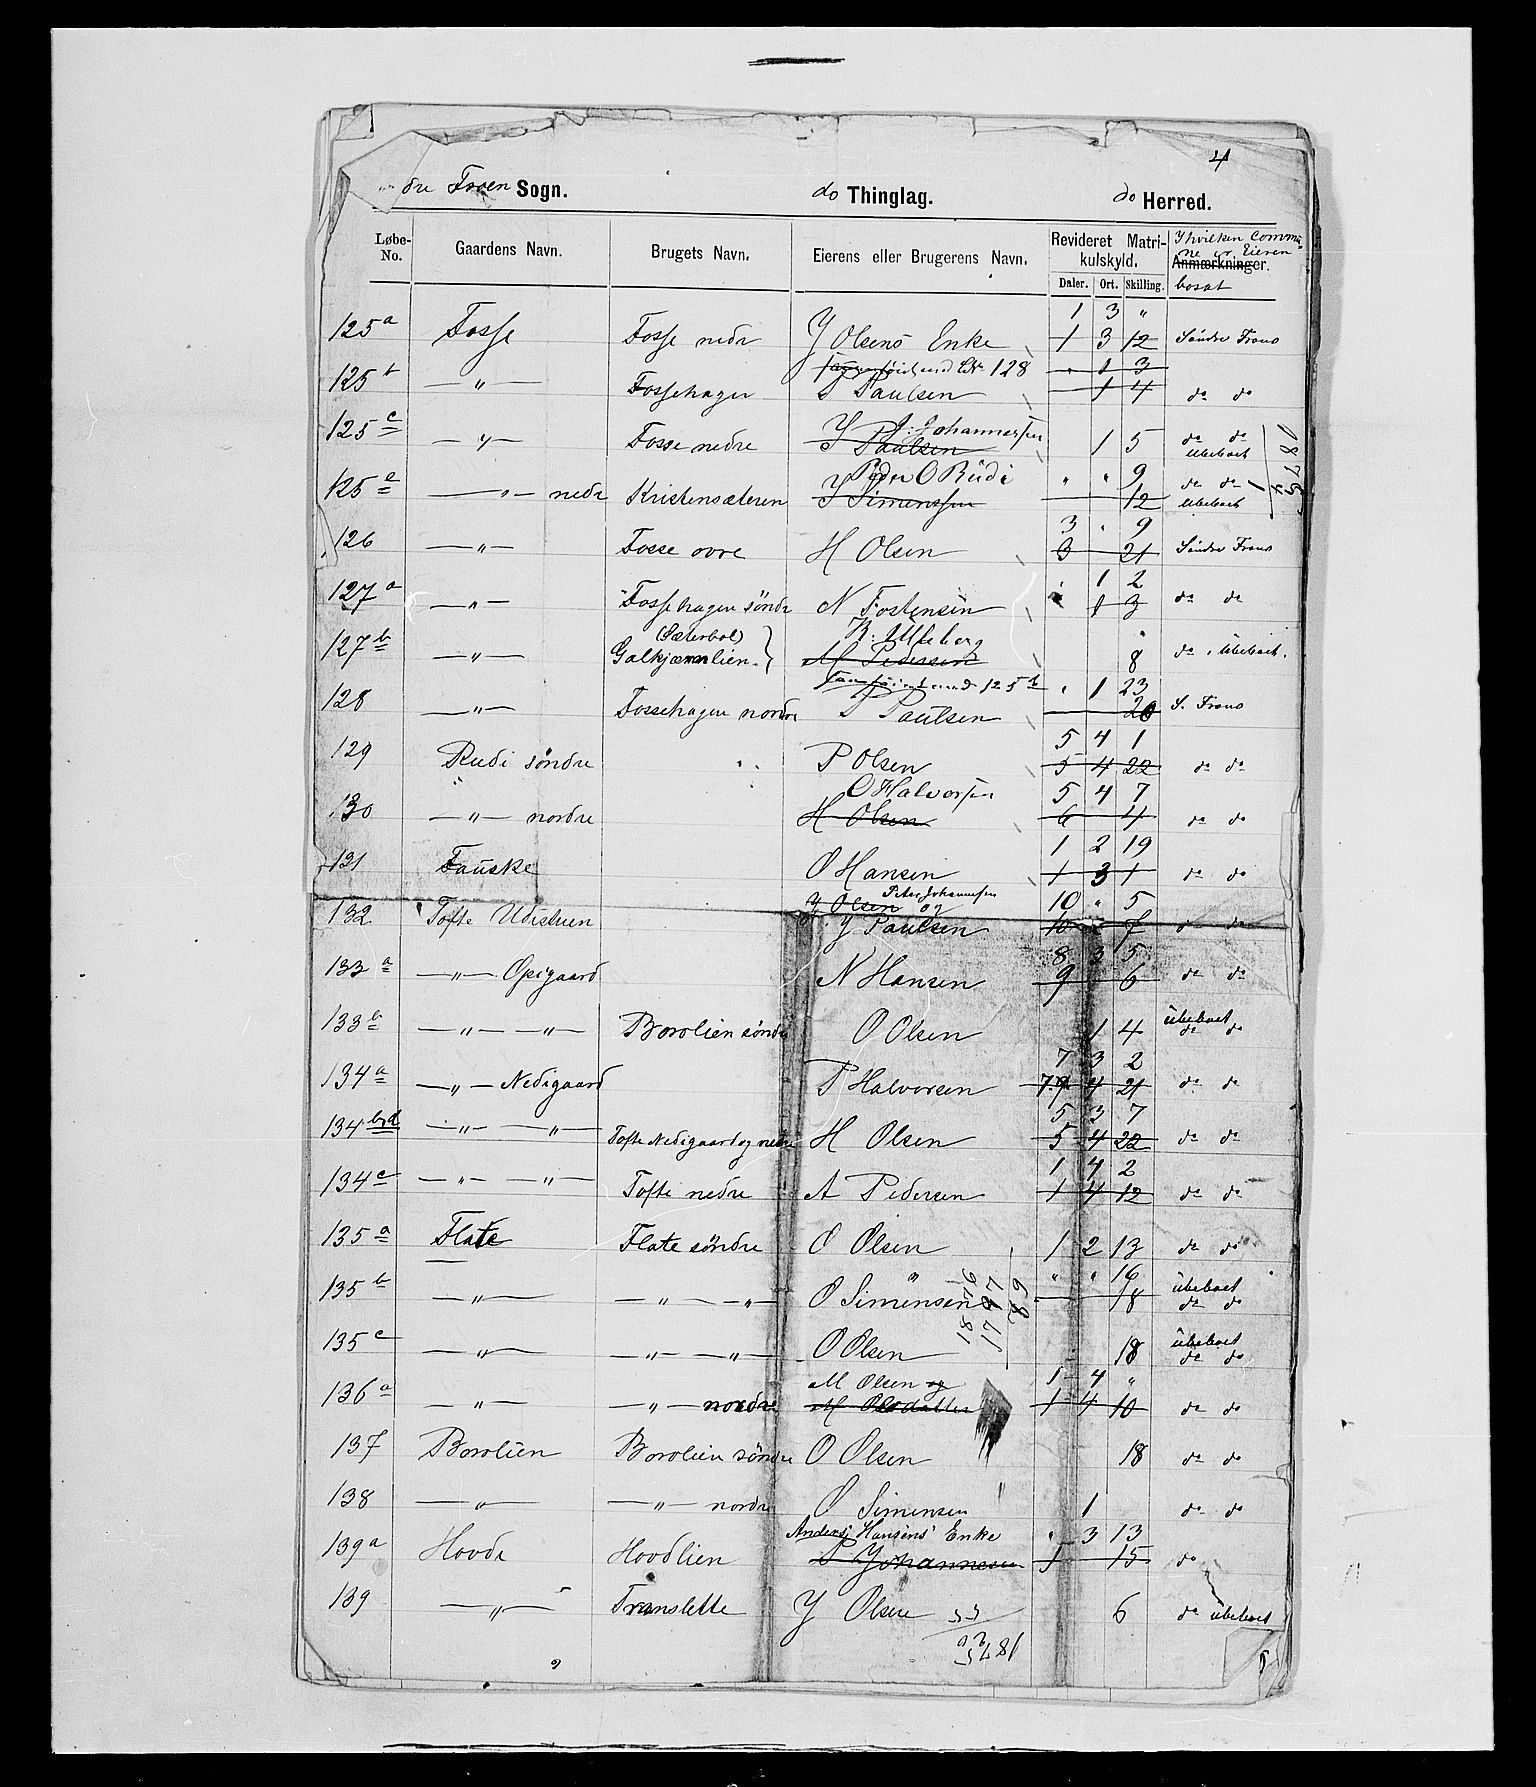 4
dre Froen Sogn. do Thinglag. do Herred.
Løbe-No. Gaardens Navn. Brugets Navn. Eierens eller Brugerens Navn. Revideret Matrikulskyld. Daler. Ort. Skilling. Anmærkninger. I hvilken Commune er Eieren bosat
1 3 "
125a Fosse Fosse nedr J Olsens Enke 1 3 12 Söndre Frons
128 " 1 3
125b — " — Fossehagen P Paulsen 1 4 do do
J. Johannessen
125c — " — Fosse nedre J Paulsen 1 5 do do
übeboet
Peder O Rüdi " " 9 do do
125e — " — nedr Kristensæteren J Simenssen 12 übeboet
3 " 9
126 — " — Fosse ovre H Olsen 3 21 Söndre Frons
1 2
127a — " — Fossehagen söndr N Tostensen 1 3 do do
(Sæterbol) "
127b — " — Galkjærnlien M Pedersen 8 do übeboet.
125b " 1 23
128 — " — Fossehagen nordre P Paulsen 20 S. Frons
5 4 1
129 Rudi söndre P Olsen 5 4 22 do do
O Halvorsen 5 4 7
130 — " — nordre H Olsen 6 4 do do
1 2 19
131 Fauske O Hansen 1 3 1 do do
J Olsen og Peter Johannessen 10 " 5
132 Tofte Udistuen J Paulsen 10 7 do do
8 3 5
133a — " — Opigaard N Hansen 9 6 do do
übeboet
133b — " — — " — Borolien söndr O Olsen 1 4 do do
7 3 2
134a — " — Nedigaard P Halvorsen 4 21 do do
5 3 7
134b,d — " — — " — Tofte Nedigaard og nedre H Olsen 5 4 22 do do
1 4 2
134c — " — — " — Tofte nedre A Pedersen 1 4 12 do do
135a Flate Flate söndre O Olsen 1 2 13 do do
" " 16 übeboet
135b — " — — " — — " — O Simensen 18 do do
übeboet
135c — " — — " — — " — O Olsen 18 do do
M Olsen og 1 4 "
136a — " — — " — nordre M Olsdatter 1 4 10 do do
137 Borolien Borolien söndre O Olsen 18 do do
138 — " — — " — nordre O Simensen 1 do do
Anders Hansens Enke " 3 13
139a Hovde Hovdlien P Johannesen 1 15 do
139 — " — Translette J Olsen 6 do übeboet